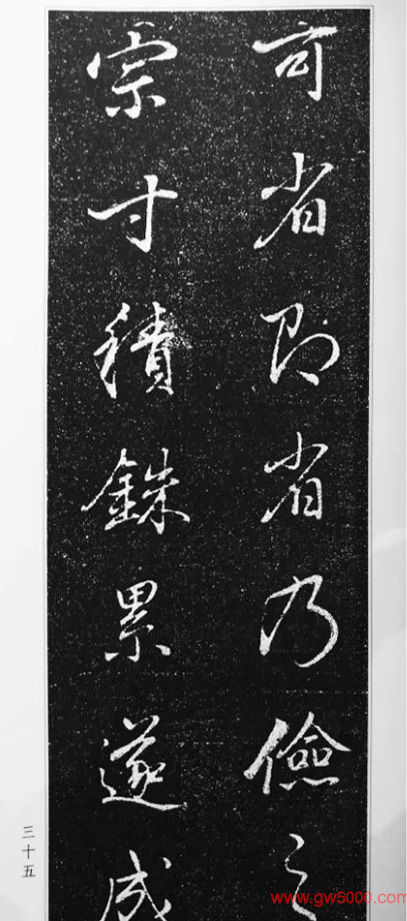 可省即省乃儉之
宗寸積銖累遂成
三十五
www.gw5000.com